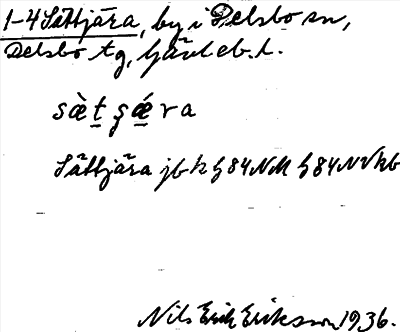 1-4 Sättjära, by i Delsbo sn,
Delsbo tg, Gävleb. l.
sæ̀t̠ ʂǽ̠ra
Sättjära jb k G 84 NM G 84 NV hb
Nils Erik Eriksson 1936.